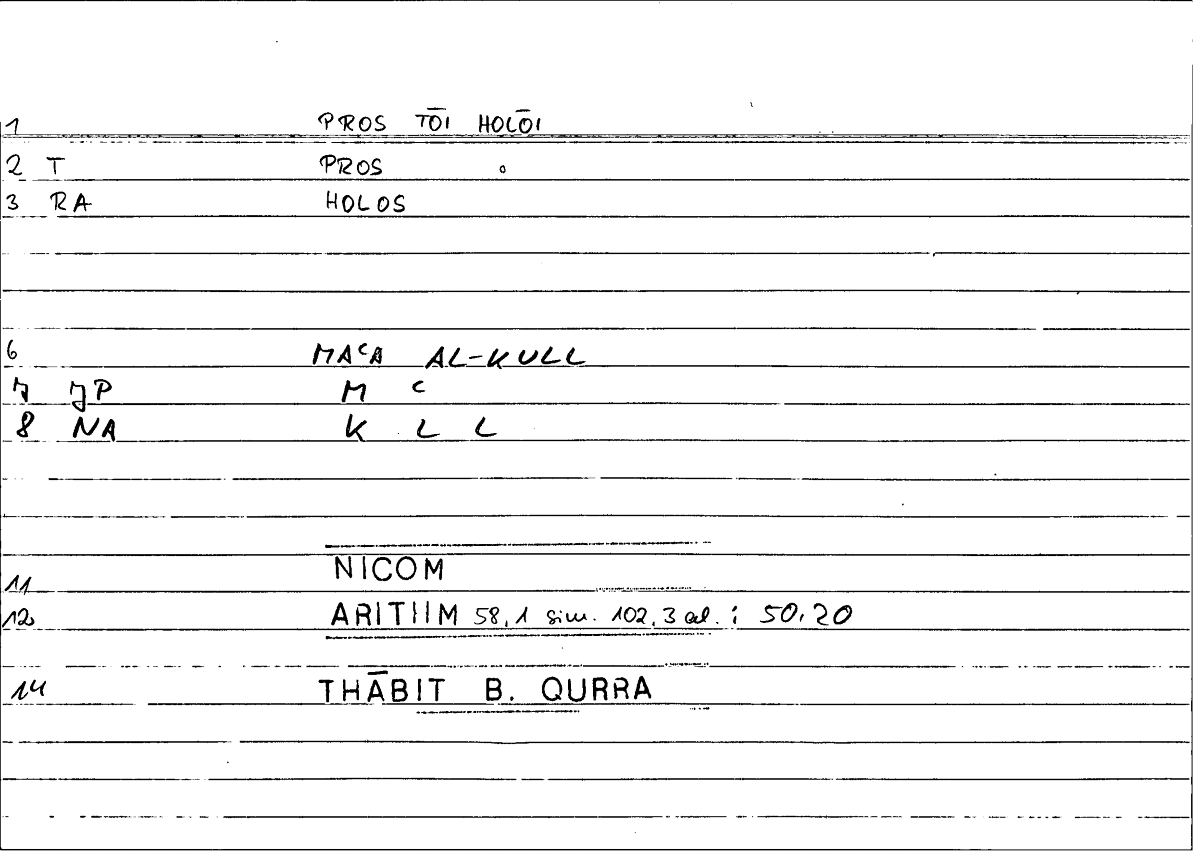 1 PROS TŌI HOLŌI
2 T PROS
3 RA HOLOS
6 MAʿA AL-KULL
7 JP M ʿ
8 NA K L L
NICOM
11
12 ARITHM 58,1 sim. 102,3 al. ; 50,20
14 THĀBIT B. QURRA